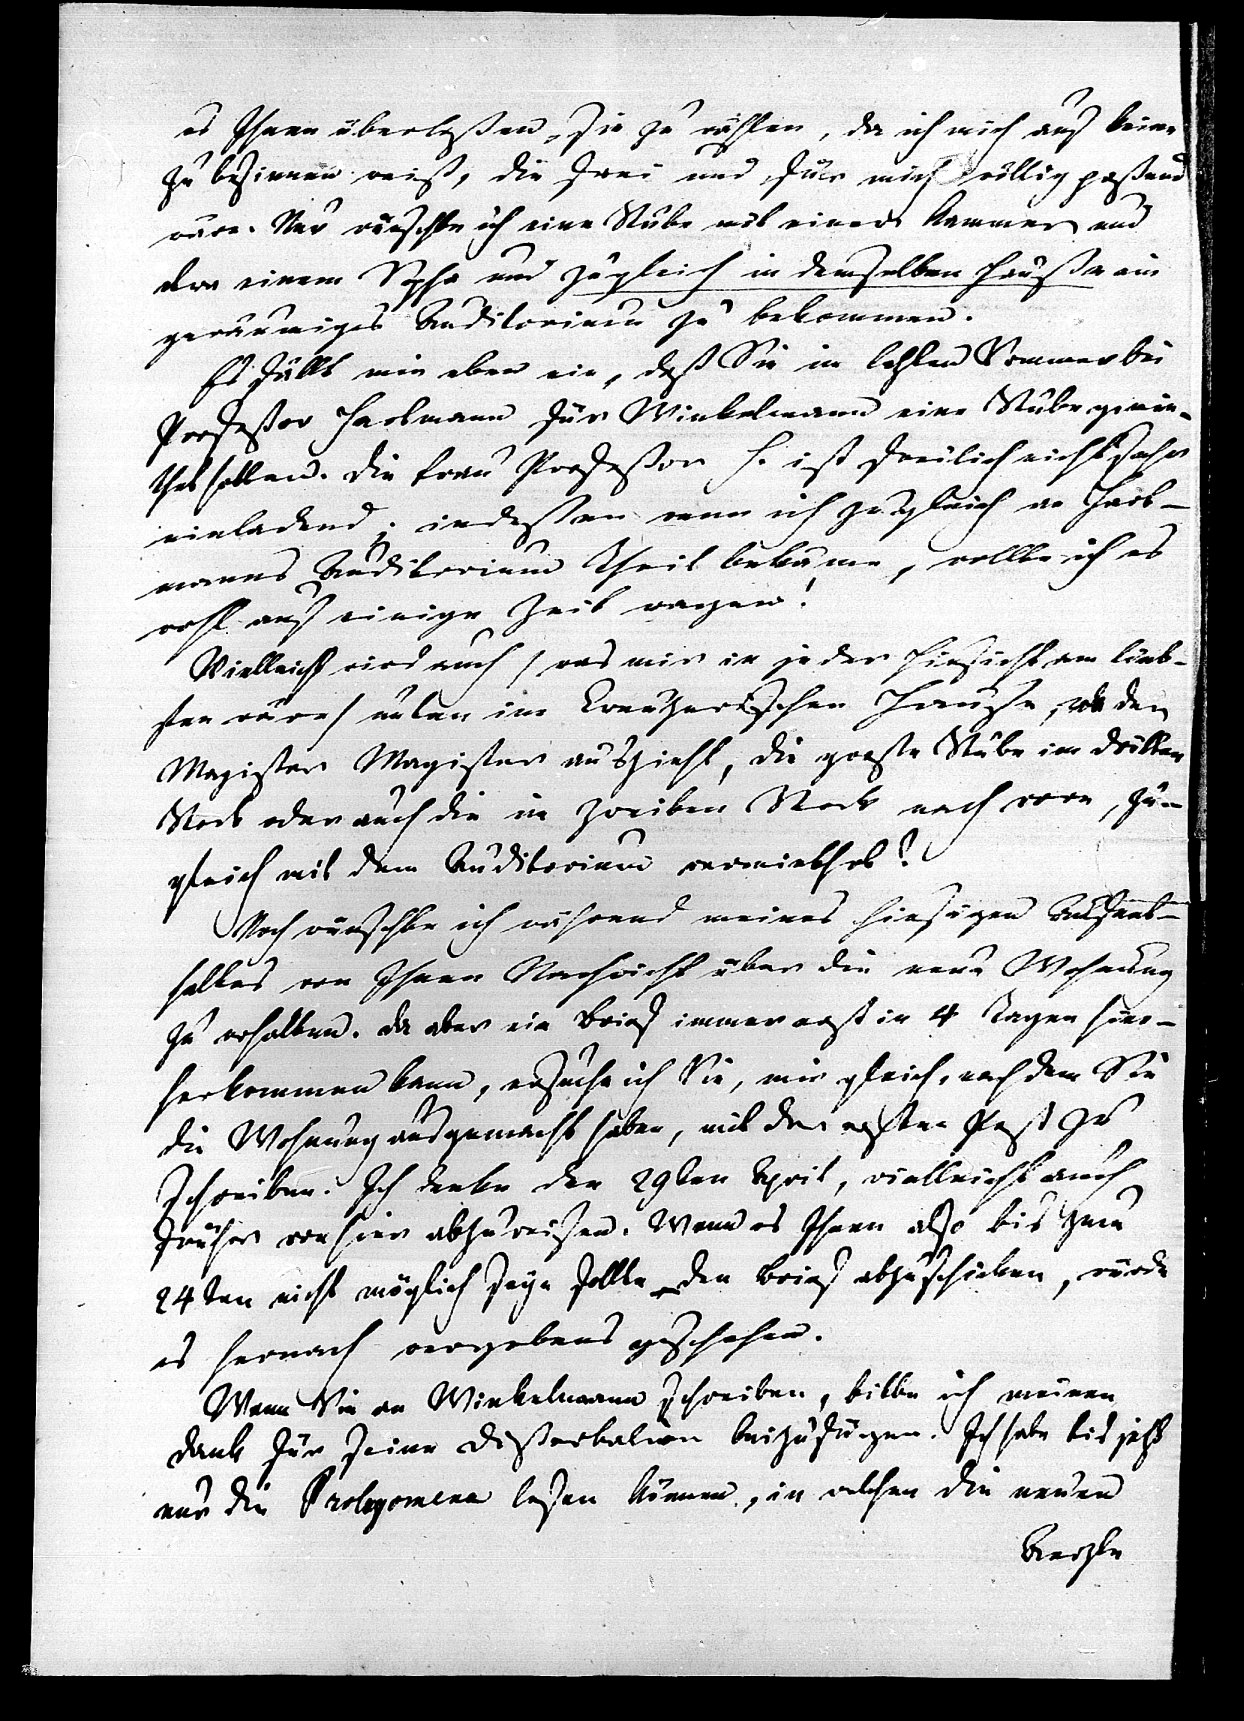 es Ihnen überlaßen, sie zu wählen, da ich mich auf keine
zu besinnen weiß, die frei und für mich völlig paßend
wäre. Nur wünschte ich eine Stube mit einer Kammer und
etwa einem Sopha und zugleich in demselben Hause ein
geräumiges Auditorium zu bekommen.
Es fällt mir eben ein, daß Sie im letzten Sommer bei
Professor Hartmann für Winkelmann eine Stube gemie-
thet hatten. Die Frau Professor H. ist freilich nicht sehr
einladend; indessen wenn ich zugleich an Hart-
manns Auditorium Theil bekäme, wollte ich es
wohl auf einige Zeit wagen!
Vielleicht wird auch / was mir in jeder Hinsicht am lieb-
sten wäre / unten im Creuzerischen Hause, wo der
Magister Magister auszieht, die große Stube im dritten
Stock oder auch die im zweiten Stock nach vorn, zu-
gleich mit dem Auditorium vermiethet?
Noch wünschte ich während meines hiesigen Aufent-
haltes von Ihnen Nachricht über die neue Wohnung
zu erhalten. Da aber ein Brief immer erst in 4 Tagen hier-
herkommen kann, ersuche ich Sie, mir gleich, nachdem Sie
die Wohnung ausgemacht haben, mit der ersten Post zu
schreiben. Ich denke den 29ten April, vielleicht auch
früher von hier abzureisen. Wenn es Ihnen also bis zum
24ten nicht möglich seyn sollte den Brief abzuschicken, würde
es hernach vergebens geschehen.
Wenn Sie an Winkelmann schreiben, bitte ich meinen
Dank für seine Dißertation beizufügen. Ich habe bis jetzt
nur die Prolegomena lesen können, in welchen die neuen
Aerzte